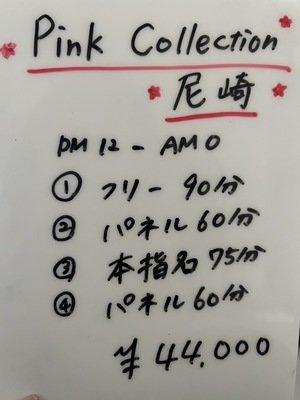 Pink Collection
尼崎
PM 12 - AM 0
① フリー 90分
② パネル 60分
③ 本指名 75分
④ パネル 60分
¥ 44.000